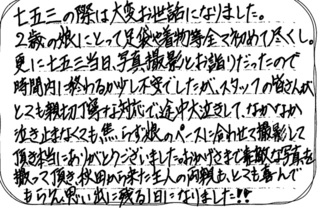 七五三の際は大変お世話になりました。
2歳の娘にとって足袋や着物等全て初めて尽くし。
更に七五三当日、写真撮影とお詣りだったので
時間内に終わるか少し不安でしたが、スタッフの皆さんが
とても親切丁寧な対応で途中大泣きして、なかなか
泣き止まなくても焦らず娘のペースに合わせて撮影して
頂き本当にありがとうございました。おかげさまで素敵な写真を
撮って頂き、秋田から来た主人の両親も、とても喜んで
もらえ思い出に残る1日になりました!!